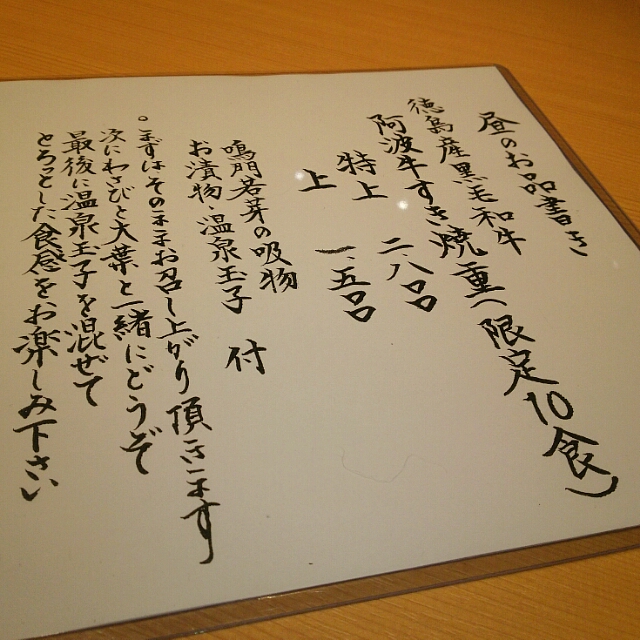 昼のお品書き
徳島産黒毛和牛
阿波牛すき焼重(限定10食)
特上 二、八〇〇
上 一、五〇〇
鳴門若芽の吸物
お漬物・温泉玉子 付
。まずはそのままお召し上がり頂きます
次にわさびと大葉と一緒にどうぞ
最後に温泉玉子を混ぜて
とろっとした食感をお楽しみ下さい